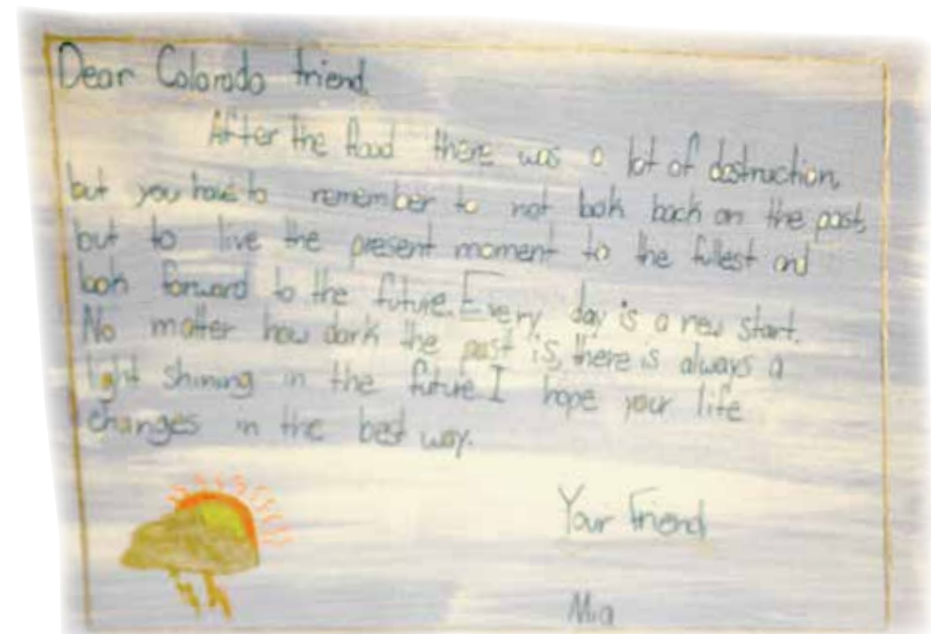 Dear Colorado friend,
After the flood there was a lot of dostruction,
but you have to remember to not look back on the past,
but to live the present moment to the fullest and
look forward to the future. Every day is a new start.
No matter how dark the past is, there is always a
light shining in the future. I hope your life
changes in the best way.
Your Friend
Mia